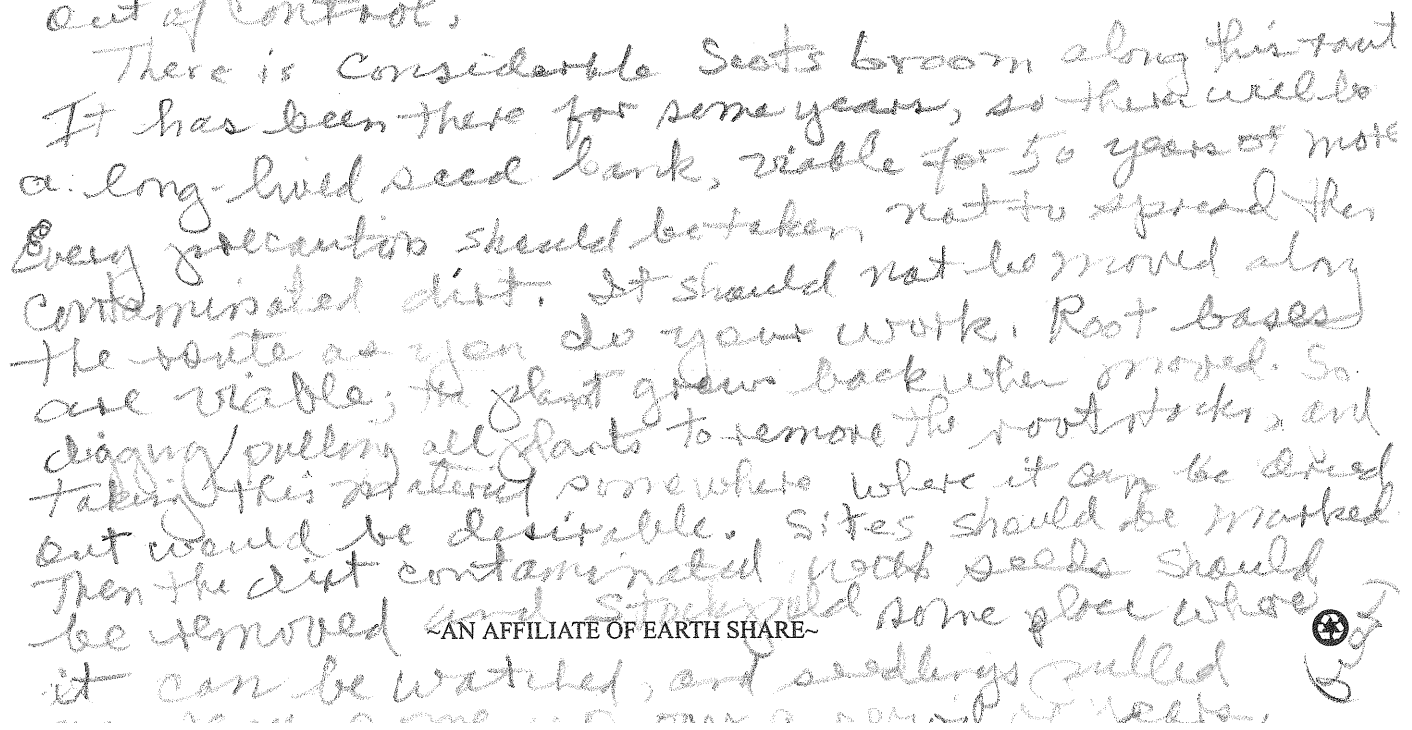 out of control.
There is considerable Scots broom along this rout
It has been there for some years, so there will be
a long-lived seed bank, viable for 50 years or more
Every precaution should be taken not to spread the
contaminated dirt. It should not be moved along
the route as you do your work. Root bases
are viable; the plant grows back when moved. So
digging/pulling all plants to remove the rootstocks, and
taking this material somewhere where it can be dried
out would be desirable. Sites should be marked
Then the dirt contaminated with seeds should
be removed and Stockpiled some place where
~AN AFFILIATE OF EARTH SHARE~
it can be watched, and seedlings pulled
years.